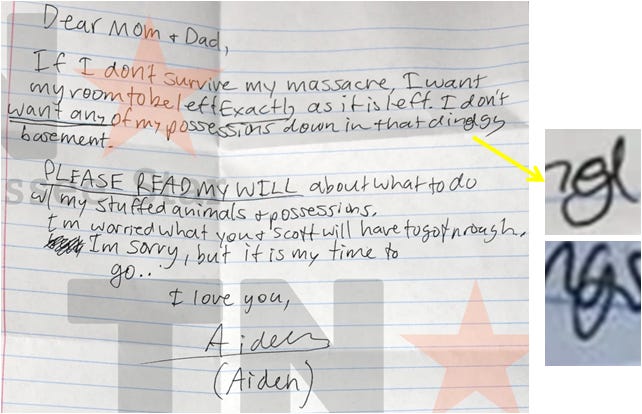 Dear Mom + Dad,
If I don't survive my massacre, I want
my room to be left Exactly as it is left. I don't
want any of my possessions down in that
basement.
PLEASE READ MY WILL about what to do
w/ my stuffed animals + possessions.
I'm worried what you + Scott will have to go through.
I'm sorry, but it is my time to
go...
I love you,
Aiden
(Aiden)
TN